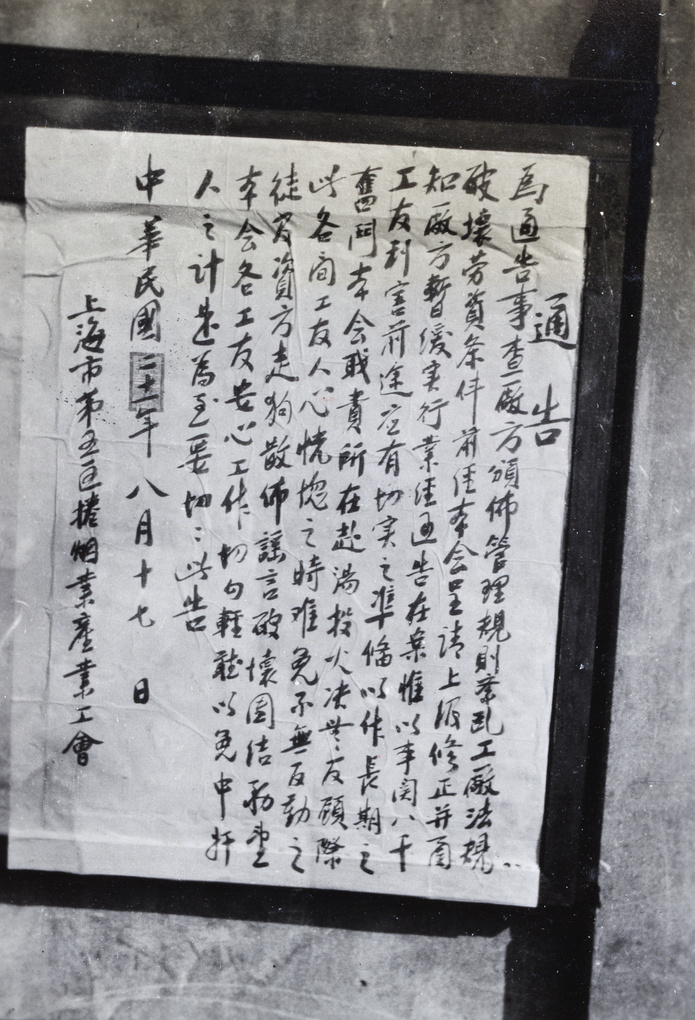 通告
為通告事查廠方頒佈管理規則紊乱工廠法規
破壞劳資条件前经本会呈請上级修正并函
知廠方暫缓实行業经通告在案惟以事関八千
工友利害前途应有切实之準偹以作長期之
奮鬥本会职責所在赴湯投火决無反顾際
此各间工友人心恍愡之時难免不無反動之
徒資方走狗散佈謡言破懷团结务望
本会各工友安心工作切勿輕聽以免中奸
人之计是為至要切：此告
中華民國二十一年八月十七日
上海市第五区捲烟業產業工會